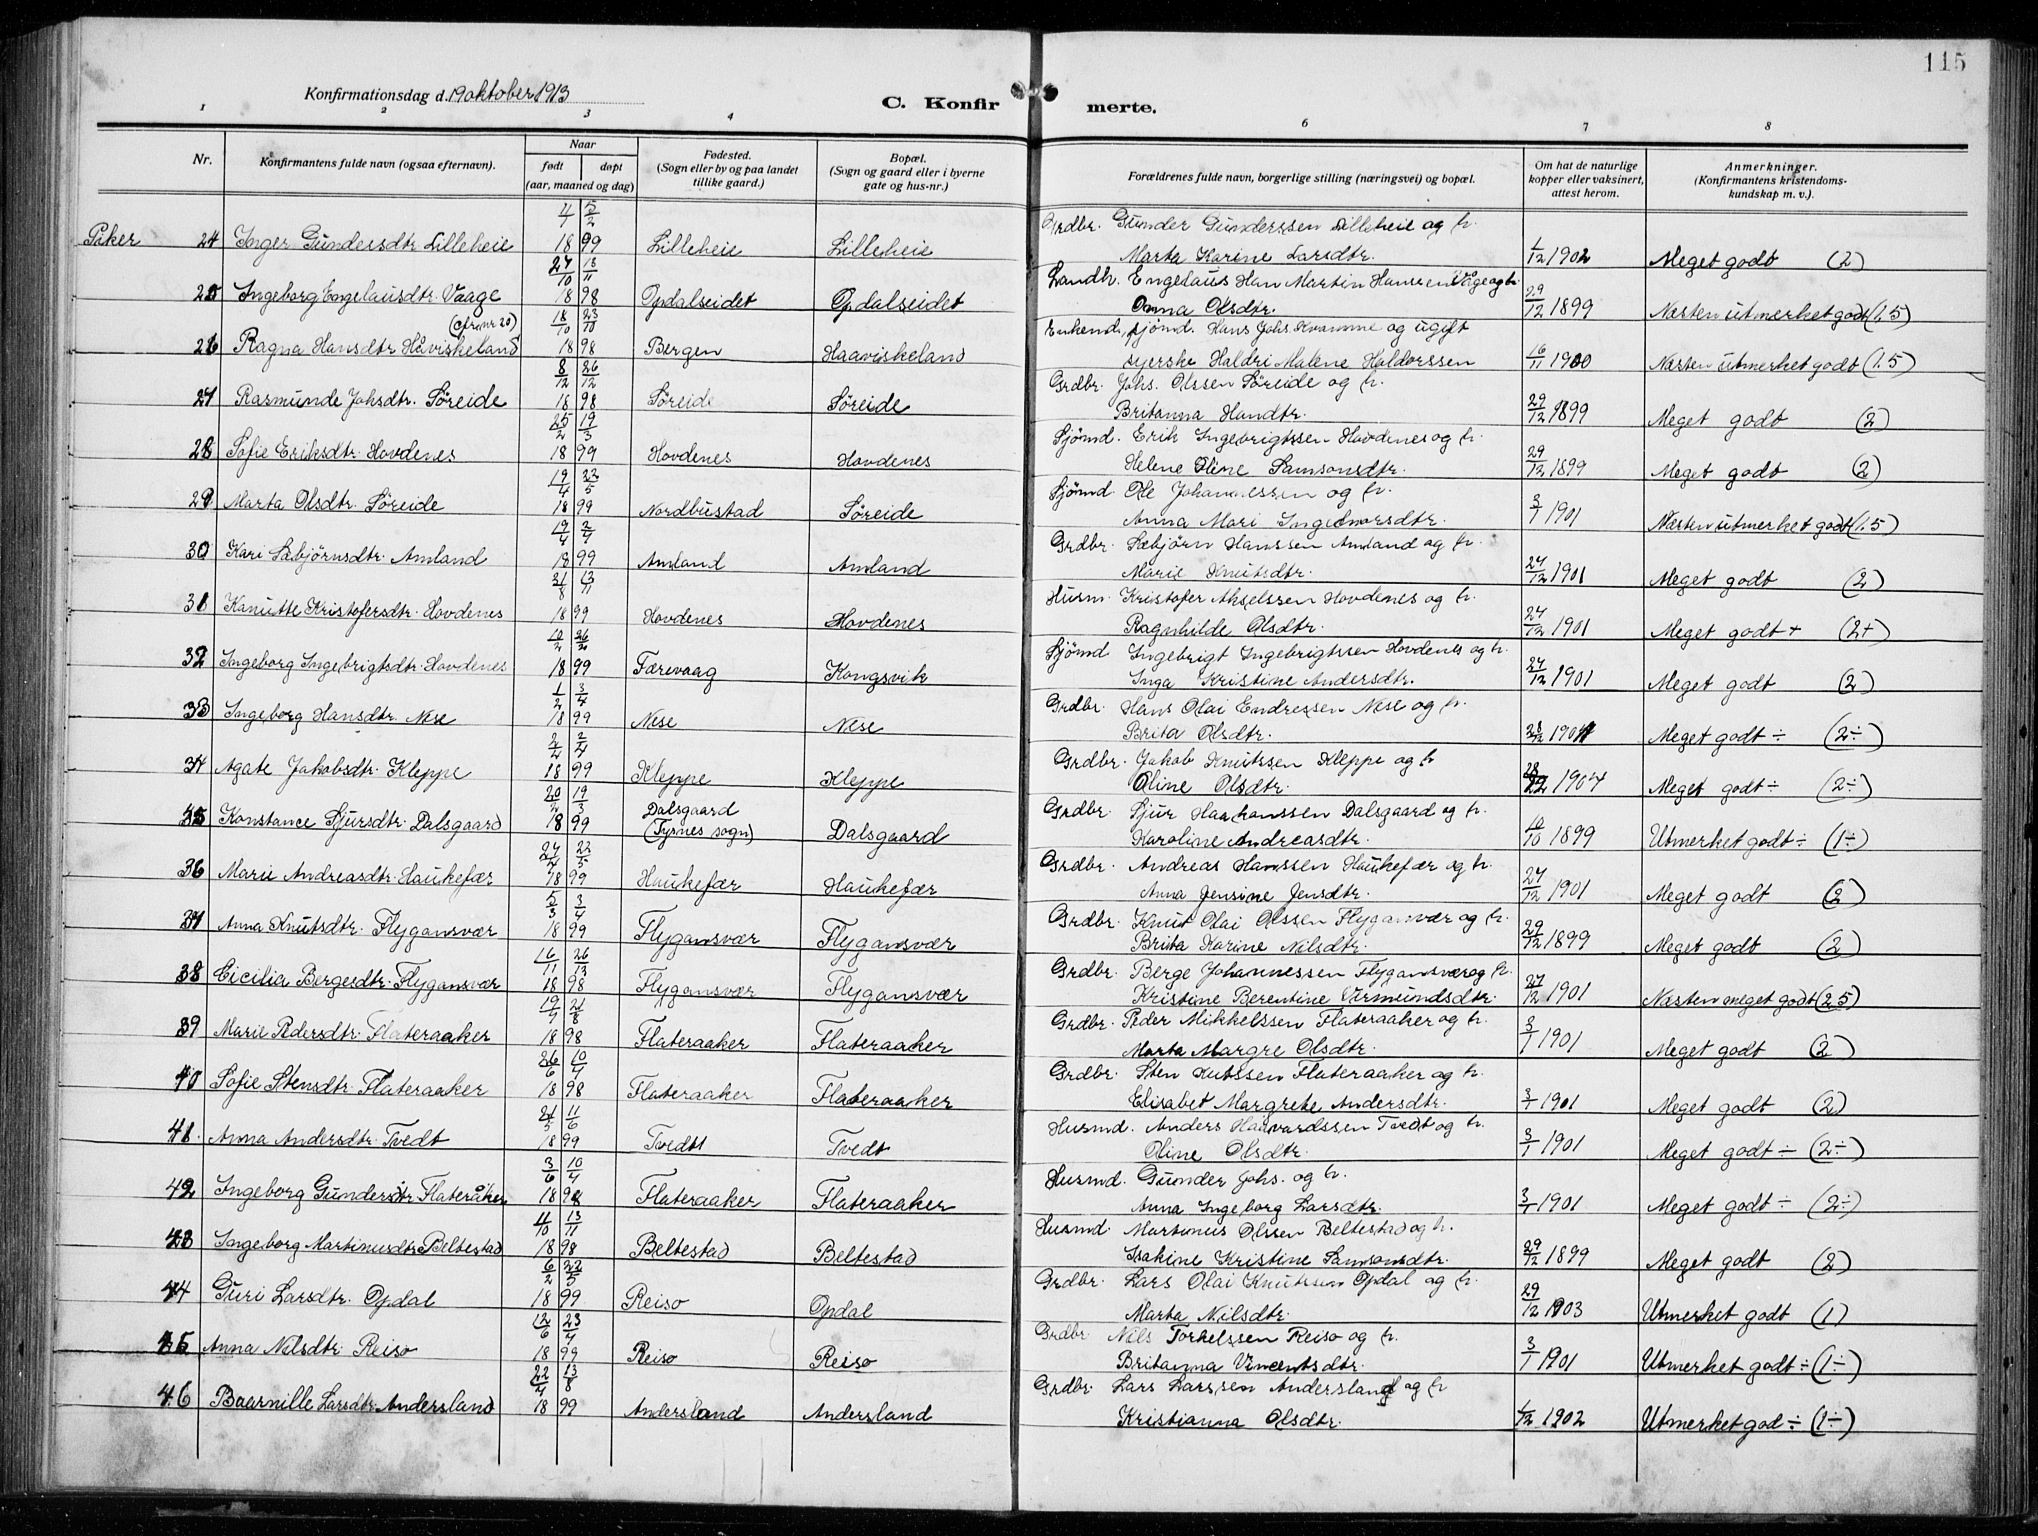 115
Konfirmationsdag d. 19 oktober 1913
C. Konfir merte.
1 2 3 4 6 7 8
Nr.
Konfirmantens fulde navn (ogsaa efternavn).
Naar
født døpt
(aar, maaned og dag)
Fødested.
(Sogn eller by og paa landet
tillike gaard.)
Bopæl.
(Sogn og gaard eller i byerne
gate og hus-nr.)
Forældrenes fulde navn, borgerlige stilling (næringsvei) og bopæl.
Om hat de naturlige
kopper eller vaksinert,
attest herom.
Anmerkninger.
(Konfirmantens kristendoms-
kundskap m. v.)
Piker 24 Inger Gundersdtr. Lilleheie 4/1 5/2 18 99 Lilleheie Lilleheie Grdbr. Gunder Gunderssen Lilleheie og h.
Marta Karine Larsdtr. 1/12 1902 Meget godt (2)
25 Ingeborg Engelausdtr. Vaage 27/10 13/11 18 98 Opdalseidet Opdalseidet Landh. Engelaus Han Martin Hansen Våge og h.
Anna Olsdtr. 29/12 1899 Næsten utmerket godt (1.5)
(cfr. nr 20)
26 Ragna Hansdtr Håviskeland 18/10 23/10 18 98 Bergen Haaviskeland Enkem., sjømd. Hans Johs. Kvamme og ugift
syerske Haldri Malene Haldorssen 16/11 1900 Næsten utmerket godt (1.5)
27 Rasmunde Johsdtr. Søreide 8/12 26/12 18 98 Søreide Søreide Grdbr. Johs. Olssen Søreide og h.
Britanna Handtr. 29/12 1899 Meget godt (2)
28 Sofie Eriksdtr. Hovdenes 25/2 19/3 18 99 Hovdenes Hovdenes Sjømd. Erik Ingebrigtssen Hovdenes og h.
Helene Oline Samsonsdtr. 29/12 1899 Meget godt (2)
29 Marta Olsdtr. Søreide 19/4 23/5 18 99 Nordbustad Søreide Sjømd Ole Johannessen og h.
Anna Mari Ingelmorsdtr. 3/1 1901 Næsten utmerket godt (1.5)
30 Kari Sæbjørnsdtr. Amland 18 99 Amland Amland Grdbr. Sæbjørn Hanssen Amland og h.
Marie Knutsdtr. 27/12 1901 Meget godt (2)
31 Kanutte Kristofersdtr. Hovdenes 21/8 13/11 18 99 Hovdenes Hovdenes Husm. Kristofer Akselssen Hovdenes og h.
Ragnhilde Olsdtr. 27/12 1901 Meget godt + (2+)
32 Ingeborg Ingebrigtsdtr. Hovdenes 18 99 Færevaag Kongsvik Sjømd Ingebrigt Ingebrigtssen Hovdenes og h.
Inga Kristine Andersdtr. 27/12 1901 Meget godt (2)
33 Ingeborg Hansdtr. Nese 1/2 3/4 18 99 Nese Nese Grdbr. Hans Olai Endressen Nese og h.
Brita Olsdtr. Meget godt ÷ (2÷)
34 Agate Jakobsdtr. Kleppe 2/2 2/4 18 99 Kleppe Kleppe Grdbr. Jakob Knutssen Kleppe og h
Oline Olsdtr. 1904 Meget godt ÷ (2÷)
35 Konstance Sjursdtr. Dalsgaard 20/2 19/3 18 99 Dalsgaard
(Tysnes sogn) Dalsgaard Grdbr. Sjur Haakonssen Dalsgaard og h.
Karoline Andreasdtr. 10/10 1899 Utmerket godt ÷ (1÷)
36 Marie Andreasdtr. Haukefær 27/4 22/5 18 99 Haukefær Haukefær Grdbr. Andreas Hanssen Haukefær og h.
Anna Jensine Jensdtr. 27/12 1901 Meget godt (2)
37 Anna Knutsdtr. Flygansvær 5/3 3/4 18 99 Flygansvær Flygansvær Grdbr. Knut Olai Olssen Flygansvær og h.
Brita Karine Nilsdtr. 29/12 1899 Meget godt (2)
38 Cicilia Bergesdtr. Flygansvær 16/11 26/12 18 98 Flygansvær Flygansvær Grdbr. Berge Johannessen Flygansvær og h.
Kristine Berentine Vermundsdtr. 27/12 1901 Næsten meget godt (2.5)
39 Marie Pedersdtr. Flateraaker 19/7 21/8 18 98 Flateraaker Flateraaker Grdbr. Peder Mikkelssen Flateraaker og h.
Marta Margre Olsdtr. 3/1 1901 Meget godt (2)
40 Sofie Stensdtr. Flateraaker 26/6 10/7 18 98 Flateraaker Flateraaker Grdbr. Sten Knutssen Flateraaker og h.
Elisabet Margrete Andersdtr. 3/1 1901 Meget godt (2)
41. Anna Andersdtr. Tvedt 21/5 11/6 18 99 Tvedt Tvedt Husmd. Anders Haavardssen Tvedt og h.
Oline Olsdtr. 3/1 1901 Meget godt ÷ (2÷)
42 Ingeborg Gundersdtr. Flateråker 3/6 10/7 18 98 Flateraaker Flateraaker Husmd. Gunder Johs. og h.
Anna Ingeborg Larsdtr. 3/1 1901 Meget godt ÷ (2÷)
43 Ingeborg Martinusdtr. Beltestad 4/10 13/11 18 98 Beltestad Beltestad Husmd. Martinus Olssen Beltestad og h.
Isakine Kristine Samsonsdtr. 29/12 1899 Meget godt (2)
44 Guri Larsdtr. Opdal 6/2 22/5 18 99 Reisø Opdal Grdbr. Lars Olai Knutssen Opdal og h.
Marta Nilsdtr. 29/12 1903 Utmerket godt (1)
45 Anna Nilsdtr. Reisø 12/6 23/7 18 99 Reisø Reisø Grdbr Nils Torkelssen Reisø og h.
Britanna Vincentsdtr. 3/1 1901 Utmerket godt ÷ (1÷)
46 Baarnille Larsdtr. Andersland 22/4 13/8 18 99 Andersland Andersland Grdbr. Lars Larssen Andersland og h
Kristianna Olsdtr. 1/12 1902 Utmerket god ÷ (1÷)